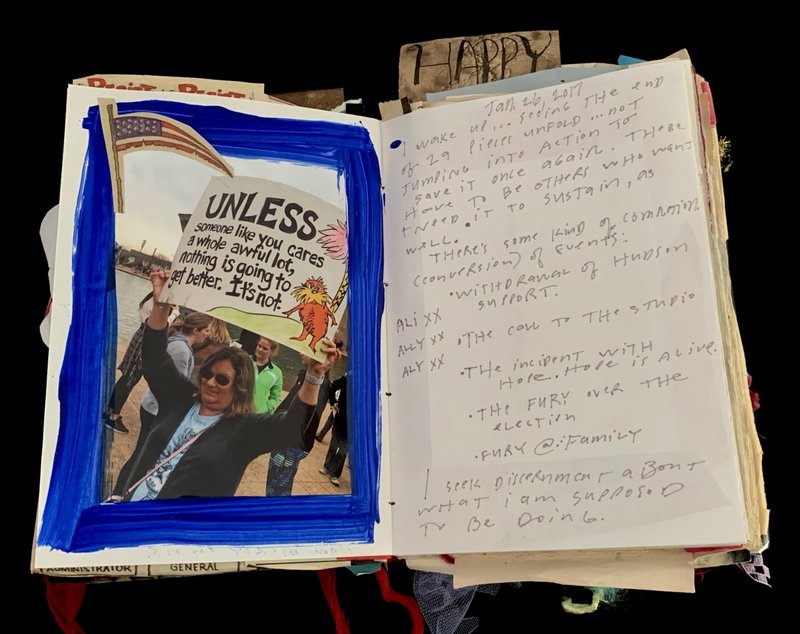 HAPPY
Resist Resist
UNLESS
someone like you cares
a whole awful lot,
nothing is going to
get better. It's not.
Jan 26, 2017
I wake up... seeing the end
of 29 Pieces unfold... not
jumping into action to
save it once again. There
have to be others who want
+ need it to sustain, as
well.
There's some kind of
(conversion) of events:
•withdrawal of Hudson
support.
Ali XX
•The call to the studio
Ally XX
Aly XX
•The incident with
Hope. Hope is alive.
•The fury over the
election
•Fury @: Family
I seek discernment about
what i am supposed
to be doing.
ADMINISTRATOR
GENERAL